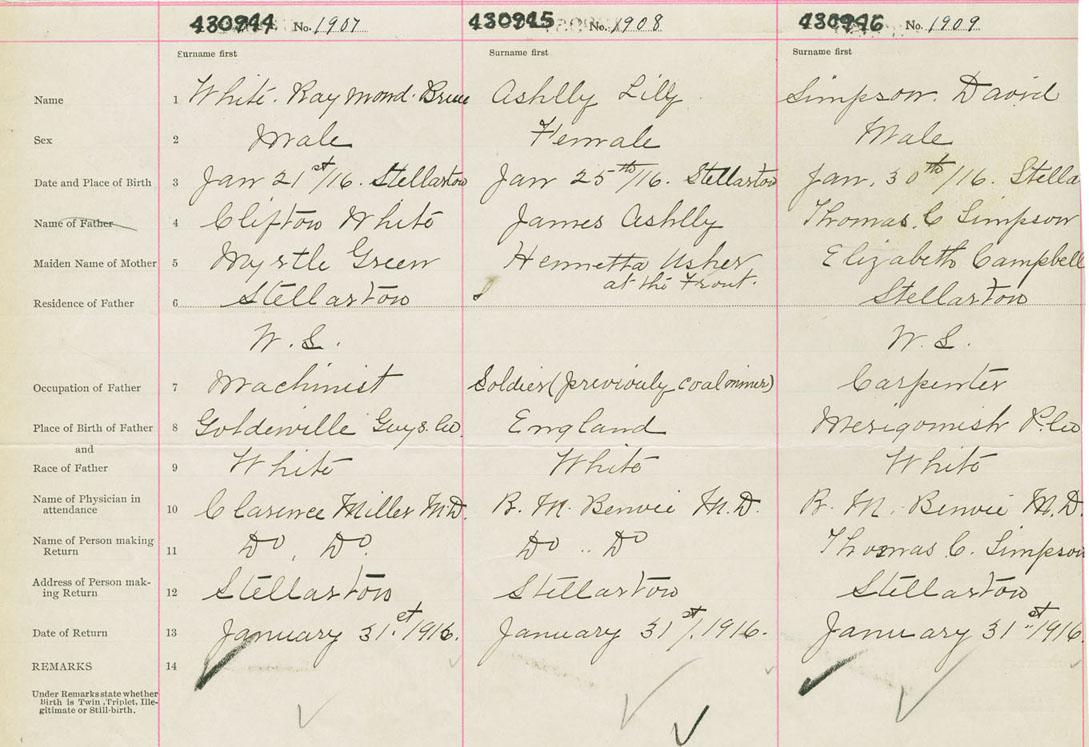 430944 No. 1907 430945 No. 1908 430946 No. 1909
Surname first Surname first Surname first
Name 1 White. Raymond. Bruce Ashlly Lilly Simpson. David
Sex 2 Male Female Male
Date and Place of Birth 3 Jan 21st/16. Stellarton Jan 25th/16. Stellarton Jan. 30th/16. Stella
Name of Father 4 Clifton White James Ashlly Thomas. C Simpson
Maiden Name of Mother 5 Myrtle Green Henretta Usher Elizabeth Campbell
at the Front.
Residence of Father 6 Stellarton Stellarton
N.S. N.S.
Occupation of Father 7 Machinist Soldier (previously coal miner) Carpenter
Place of Birth of Father 8 Goldenville Guys. Co. England Merigomish P. Co
and
Race of Father 9 White White White
Name of Physician in
attendance 10 Clarence Miller M.D. R. M. Benvie M.D. R. M. Benvie M.D.
Name of Person making
Return 11 Do. Do. Do .. Do Thomas C. Simpson
Address of Person mak-
ing Return 12 Stellarton Stellarton Stellarton
Date of Return 13 January 31.st 1916. January 31st. 1916. January 31st 1916
REMARKS 14
Under Remarks state whether
Birth is Twin, Triplet, Ille-
gitimate or Still-birth.